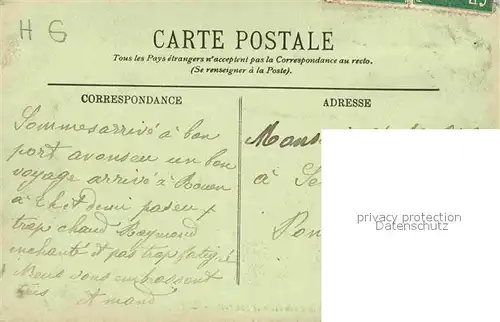 H G
CARTE POSTALE
Tous les Pays étrangers n'acceptent pas la Correspondance au recto.
(Se renseigner à la Poste).
CORRESPONDANCE
ADRESSE
Sommes arrivé à bon
port avons eu un bon
voyage arrivé à Rouen
à et demi pas eu
trop chaud Raymond
enchanté et pas trop fatigué
vous embrassent
tous Armand
à
privacy protection
Datenschutz